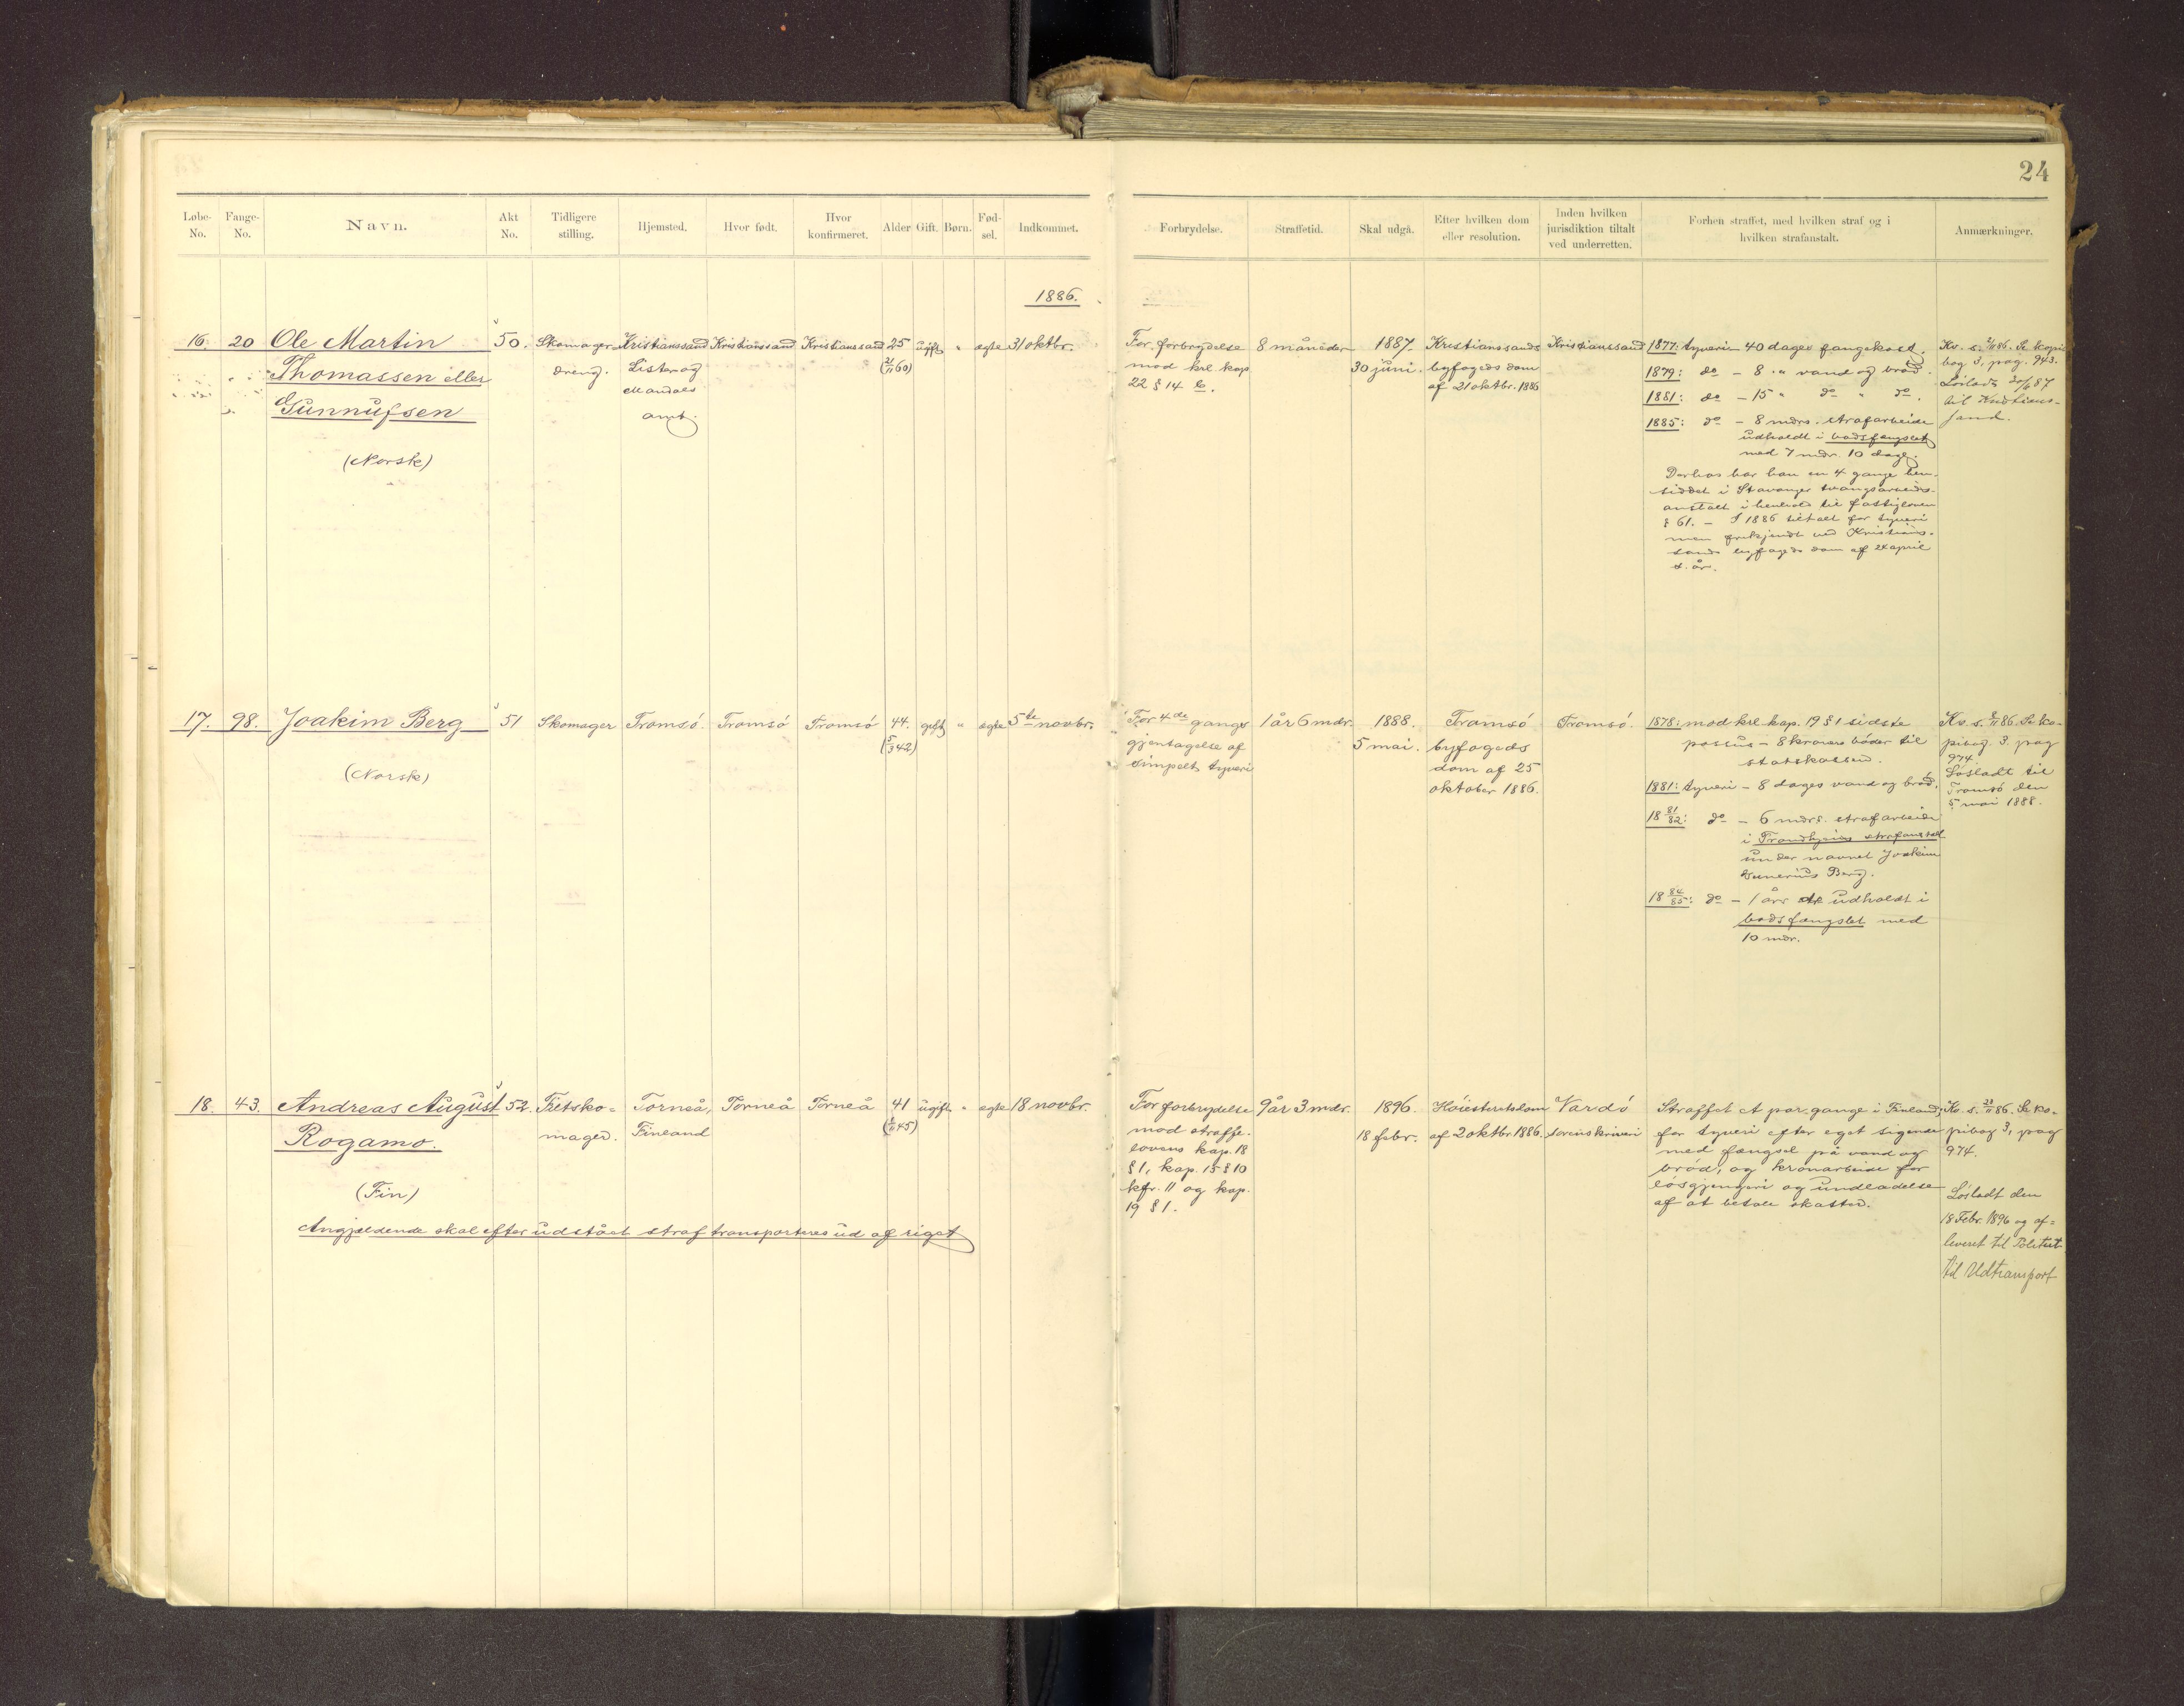 24
Løbe-No. Fange-No. Navn. Akt No. Tidligere stilling. Hjemsted. Hvor født. Hvor konfirmeret. Alder Gift. Børn. Fød-sel. Indkommet.
Forbrydelse. Straffetid. Skal udgå. Efter hvilken dom eller resolution. Inden hvilken jurisdiktion tiltalt ved underretten. Forhen straffet, med hvilken straf og i hvilken strafanstalt. Anmærkninger.
1886.
16. 20 Ole Martin
Thomassen eller
Gunnufsen
(Norsk)
50.
Skomager-
dreng.
Kristianssand
Lister og
Mandals
amt.
Kristianssand
Kristianssand
25
ugift
"
egte
31 oktbr.
For forbrydelse
mod krl kap
22 § 14 b.
8 måneder
1887.
30 juni.
Kristianssands
byfogeds dom
af 21 oktbr. 1886
Kristianssand
1877: tyveri 40 dages fangekost.
1879: do - 8 " vand og brød.
1881: do - 15 " do " do.
1885: do - 8 mdrs. strafarbeide
udholdt i bodsfængslet
med 7 mdr. 10 dage.
Derhos har han en 4 gange hen-
siddet i Stavanger tvangsarbeids-
anstalt i henhold til fattigloven
§ 61. - I 1886 tiltalt for tyveri
men frikjendt ved Kristians-
sands byfogeds dom af 24 april
d. år.
Kv. s. 2/11 86. Se kopi
bog 3, pag. 943.
Løsladt 30/6 87
til Kristians-
sand.
17. 98. Joakim Berg
(Norsk)
51
Skomager
Tromsø
Tromsø
Tromsø
44.
(5/3 42)
gift
"
egte
5te novbr.
For 4de gangs
gjentagelse af
simpelt tyveri
1 år 6 mdr.
1888.
5 mai.
Tromsø
byfogeds
dom af 25
oktober 1886.
Tromsø.
1878: mod krl kap. 19 § 1 sidste
passus - 8 kroners bøder til
statskassen.
1881: tyveri - 8 dages vand og brød.
18 81/82: do - 6 mdrs. strafarbeide
i Trondhjems strafanstalt
under navnet Joakim
Berg.
18 84/85: do - 1 års str. udholdt i
bodsfængslet med
10 mdr.
Kv. s. 8/11 86. Se ko-
pibog. 3. pag
974.
Løsladt til
Tromsø den
5 mai 1888.
18. 43. Andreas August
Rogamo.
(Fin)
Angjældende skal efter udstået straf transporteres ud af riget
52.
Filtsko-
mager.
Torneå,
Finland
Torneå
Torneå
41
ugift
"
egte
18 novbr.
For forbrydelse
mod straffe-
lovens kap. 18
§ 1, kap. 15 § 10
kfr. 11 og kap.
19 § 1.
9 år 3 mdr.
1896.
18 febr.
Høiesteretsdom
af 2 oktbr. 1886.
Vardø
sorenskriveri
Straffet et par gange i Finland
for tyveri efter eget sigende
med fængsel på vand og
brød, og kronarbeide for
løsgjengeri og undladelse
af at betale skatter.
Kv. s. 23/11 86. Se ko-
pibog 3, pag
974.
Løsladt den
18 Febr. 1896 og af-
leveret til Politiet
til Udtransport